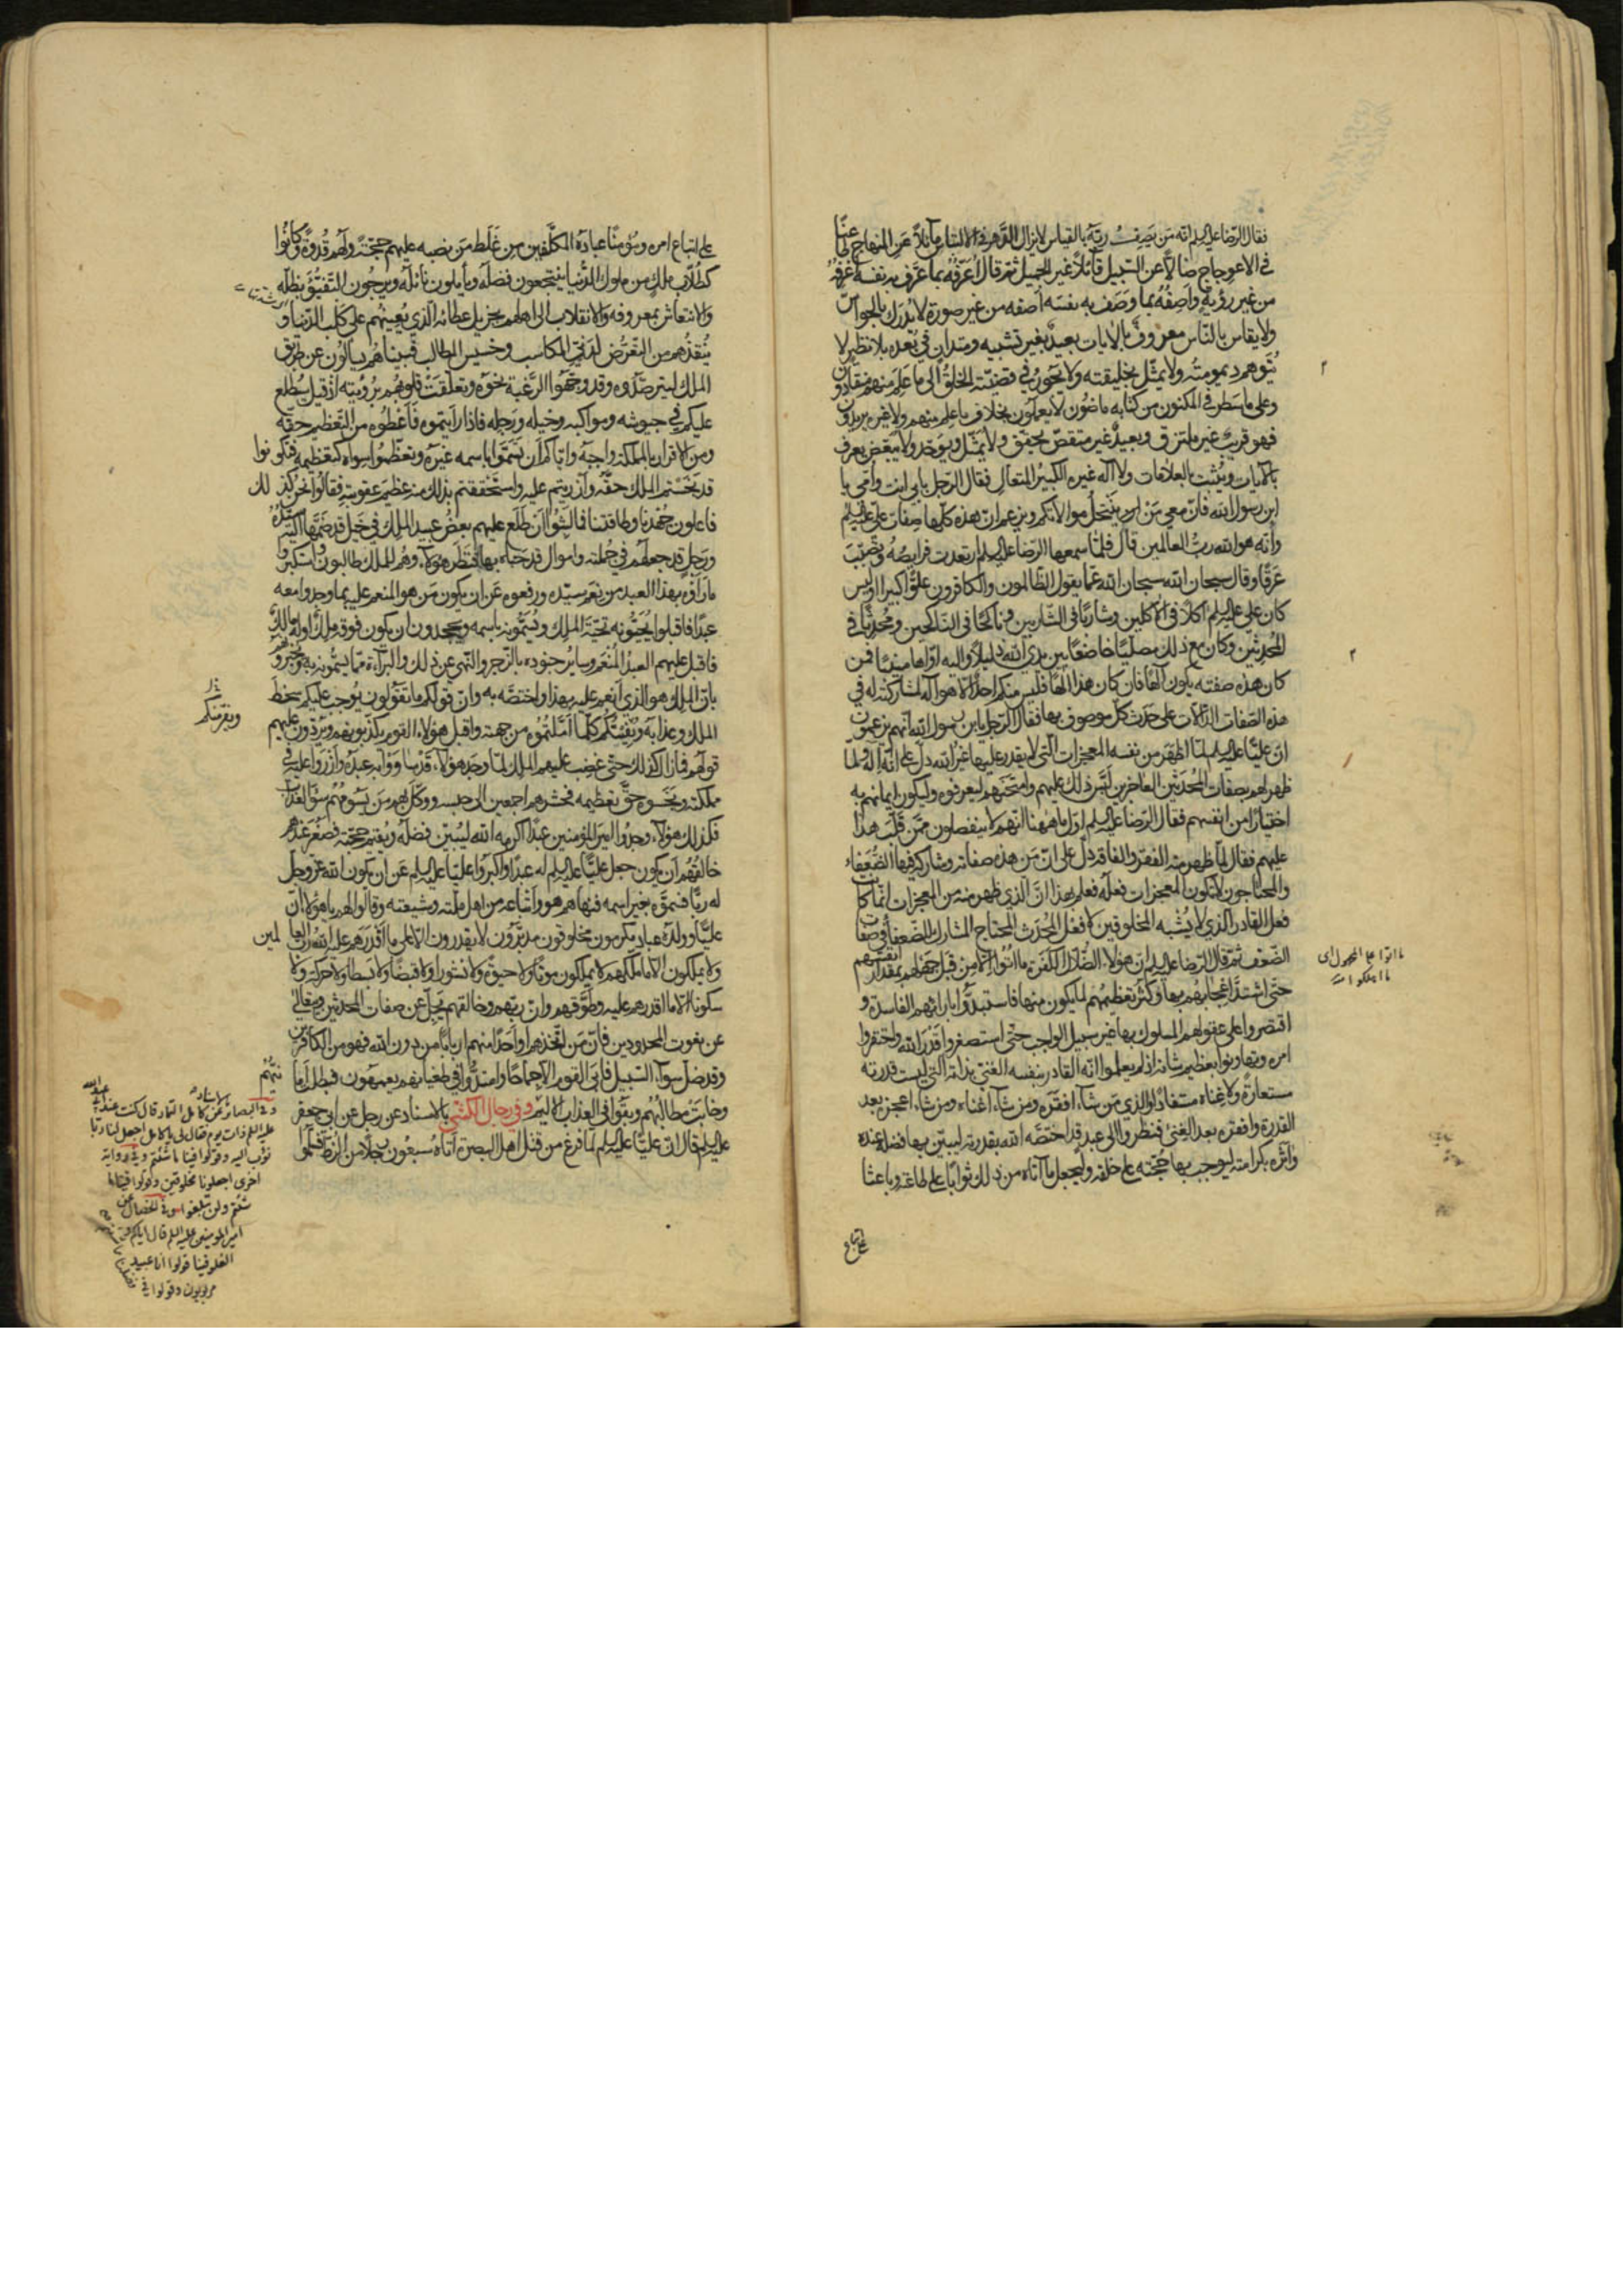 فقال الرضا عليه السلم انه من يصف ربه بالقياس لا يزال الدهر في الالتباس مائلا عن المنهاج ظاعنا
في الاعوجاج ضالا عن السبيل قائلا غير الجميل ثم قال اعرفه بما عرف به نفسه اعرفه
من غير رؤية واصفه بما وصف به نفسه اصفه من غير صورة لا يدرك بالحواس
ولا يقاس بالناس معروف بالايات بعيد بغير تشبيه ومتدان في بعده بلا نظير لا
يتوهم ديمومته ولا يمثل بخليقته ولا يجور في قضيته الخلق الى ما علم منهم منقادون
وعلى ما سطر في المكنون من كتابه ماضون لا يعملون بخلاف ما علم منهم ولا غيره يريدون
فهو قريب غير ملتزق وبعيد غير متقص يحقق ولا يمثل ويوحد ولا يبعض يعرف
بالايات ويثبت بالعلامات ولا اله غيره الكبير المتعال فقال الرجل بابي انت وامي يا
ابن رسول الله فان معي من ينتحل موالاتكم ويزعم ان هذه كلها صفات علي عليه السلم
وانه هو الله رب العالمين قال فلما سمعها الرضا عليه السلم ارتعدت فرايصه وتصبب
عرقا وقال سبحان الله سبحان الله عما يقول الظالمون والكافرون علوا كبيرا اوليس
كان علي عليه السلم اكلا في الاكلين وشاربا في الشاربين وناكحا في الناكحين ومحدثا في
المحدثين وكان مع ذلك مصليا خاضعا بين يدي الله ذليلا واليه اواها منيبا افمن
كان هذه صفته يكون الها فان كان هذا الها فليس منكم احد الا هو اله لمشاركته له في
هذه الصفات الدالات على حدث كل موصوف بها فقال الرجل يا بن رسول الله انهم يزعمون
ان عليا عليه السلم لما اظهر من نفسه المعجزات التي لا يقدر عليها غير الله دل على انه اله ولما
ظهر لهم بصفات المحدثين العاجزين لبس ذلك عليهم وامتحنهم ليعرفوه وليكون ايمانهم به
اختيارا من انفسهم فقال الرضا عليه السلم اول ما ههنا انهم لا ينفصلون ممن قلب هذا
عليهم فقال لما ظهر منه الفقر والفاقة دل على ان من هذه صفاته وشاركه فيها الضعفاء
والمحتاجون لا تكون المعجزات فعله فعلم بهذا ان الذي ظهر منه من المعجزات انما كانت
فعل القادر الذي لا يشبه المخلوقين لا فعل المحدث المحتاج المشارك للضعفاء في صفات
الضعف ثم قال الرضا عليه السلم ان هؤلاء الضلال الكفرة ما اتوا الا من قبل جهلهم بمقدار انفسهم
حتى اشتد اعجابهم بها وكثر تعظيمهم لما يكون منها فاستبدوا بارائهم الفاسدة و
اقتصروا على عقولهم المسلوك بها غير سبيل الواجب حتى استصغروا قدر الله واحتقروا
امره وتهاونوا بعظيم شانه اذ لم يعلموا انه القادر بنفسه الغني بذاته التي ليست قدرته
مستعارة ولا غناه مستفادا والذي من شاء افقره ومن شاء اغناه ومن شاء اعجزه بعد
القدرة وافقره بعد الغنى فنظروا الى عبد قد اختصه الله بقدرته ليبين بها فضله عنده
واثره بكرامته ليوجب بها حجته على خلقه وليجعل ما اتاه من ذلك ثوابا على طاعته وباعثا
على اتباع
على اتباع امره ومؤمنا عباده المكلفين من غلط من نصبه عليهم حجة ولهم قدوة وكانوا
كطلاب ملك من ملوك الدنيا ينتجعون فضله ويأملون نائله ويرجون التفيؤ بظله
والانتعاش بمعروفه والانقلاب الى اهلهم بجزيل عطائه الذي يعينهم على كلب الدنيا و
ينقذهم من التعرض لدني المكاسب وخسيس المطالب فبيناهم يسألون عن طريق
الملك ليترصدوه وقد وجهوا الرغبة نحوه وتعلقت قلوبهم برؤيته اذ قيل سيطلع
عليكم في جيوشه ومواكبه وخيله ورجله فاذا رايتموه فاعطوه من التعظيم حقه
ومن الاقرار بالمملكة واجبه واياكم ان تسموا باسمه غيره وتعظموا سواه كتعظيمه فتكونوا
قد بخستم الملك حقه وازريتم عليه واستحققتم بذلك منه عظيم عقوبته فقالوا نحن كذلك
فاعلون جهدنا وطاقتنا فما لبثوا ان طلع عليهم بعض عبيد الملك في خيل قد ضمها اليه سيده
ورجل قد جعلهم في جملته واموال قد حباه بها فنظر هؤلاء وهم للملك طالبون استكبروا
ما راوه بهذا العبد من نعم سيده ورفعوه عن ان يكون من هو المنعم عليه بما وجدوا معه
عبدا فاقبلوا يحيونه تحية الملك ويسمونه باسمه ويجحدون ان يكون فوقه ملك او له مالك
فاقبل عليهم العبد المنعم وساير جنوده بالزجر والنهي عن ذلك والبراءة مما يسمونه به ويخبرونهم
بان الملك هو الذي انعم عليه بهذا واختصه به وان قولكم ما تقولون يوجب عليكم سخط
الملك وعذابه ويفيتكم كلما املتموه من جهته واقبل هؤلاء القوم يكذبونهم ويردون عليهم
قولهم فما زال كذلك حتى غضب عليهم الملك لما وجد هؤلاء قد ساووا به عبده وازروا عليه في
مملكته وبخسوه حق تعظيمه فحشرهم اجمعين الى حبسه ووكل بهم من يسومهم سوء العذاب
فكذلك هؤلاء وجدوا امير المؤمنين عبدا اكرمه الله ليبين فضله ويقيم حجته فصغر عندهم
خالقهم ان يكون جعل عليا عليه السلم له عبدا واكبروا عليا عليه السلم عن ان يكون الله عز وجل
له ربا فسموه بغير اسمه فنهاهم هو واتباعه من اهل ملته وشيعته وقالوا لهم يا هؤلاء ان
عليا وولده عباد مكرمون مخلوقون مدبرون لا يقدرون الا على ما اقدرهم عليه الله رب العالمين
ولا يملكون الا ما ملكهم لا يملكون موتا ولا حيوة ولا نشورا ولا قبضا ولا بسطا ولا حركة ولا
سكونا الا ما اقدرهم عليه وطوقهم وان ربهم وخالقهم يجل عن صفات المحدثين ويتعالى
عن نعوت المحدودين فان من اتخذهم او واحدا منهم اربابا من دون الله فهو من الكافرين
وقد ضل سواء السبيل فابى القوم الا جماحا وامتدوا في طغيانهم يعمهون فبطل امانيهم
وخابت مطالبهم وبقوا في العذاب الاليم وفي رجال الكشي بالاسناد عن رجل عن ابي جعفر
عليه السلم قال ان عليا عليه السلم لما فرغ من قتال اهل البصرة اتاه سبعون رجلا من الزط فسلموا
ويفيتنكم
وفي البصائر باسناده عن كامل التمار قال كنت عند ابي عبد الله
عليه السلم ذات يوم فقال لي يا كامل اجعل لنا ربا
نؤب اليه وقولوا فينا ما شئتم وفي رواية
اخرى اجعلونا مخلوقين وقولوا فينا ما
شئتم ولن تبلغوا وفي الخصال عن
امير المؤمنين عليه السلم قال اياكم و
الغلو فينا قولوا انا عبيد
مربوبون وقولوا في